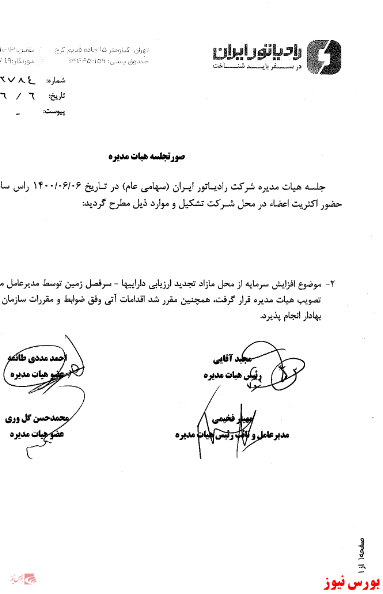 رادیاتور ایران
در سفر باید شناخت
تهران: کیلومتر ۱۵ جاده قدیم کرج
صندوق پستی:
شماره:
تاریخ: ۶ / ۶
پیوست: -
صورتجلسه هیات مدیره
جلسه هیات مدیره شرکت رادیاتور ایران (سهامی عام) در تاریخ ۱۴۰۰/۰۶/۰۶ راس سا
حضور اکثریت اعضاء در محل شرکت تشکیل و موارد ذیل مطرح گردید:
۲- موضوع افزایش سرمایه از محل مازاد تجدید ارزیابی داراییها – سرفصل زمین توسط مدیرعامل م
تصویب هیات مدیره قرار گرفت، همچنین مقرر شد اقدامات آتی وفق ضوابط و مقررات سازمان
بهادار انجام پذیرد.
مجید آقایی
رئیس هیات مدیره
احمد مددی طائمه
عضو هیات مدیره
بهنیار فخیمی
مدیرعامل و نائب رئیس هیات مدیره
محمدحسن گل وری
عضو هیات مدیره
صفحه ۱ از ۱
بورس نیوز